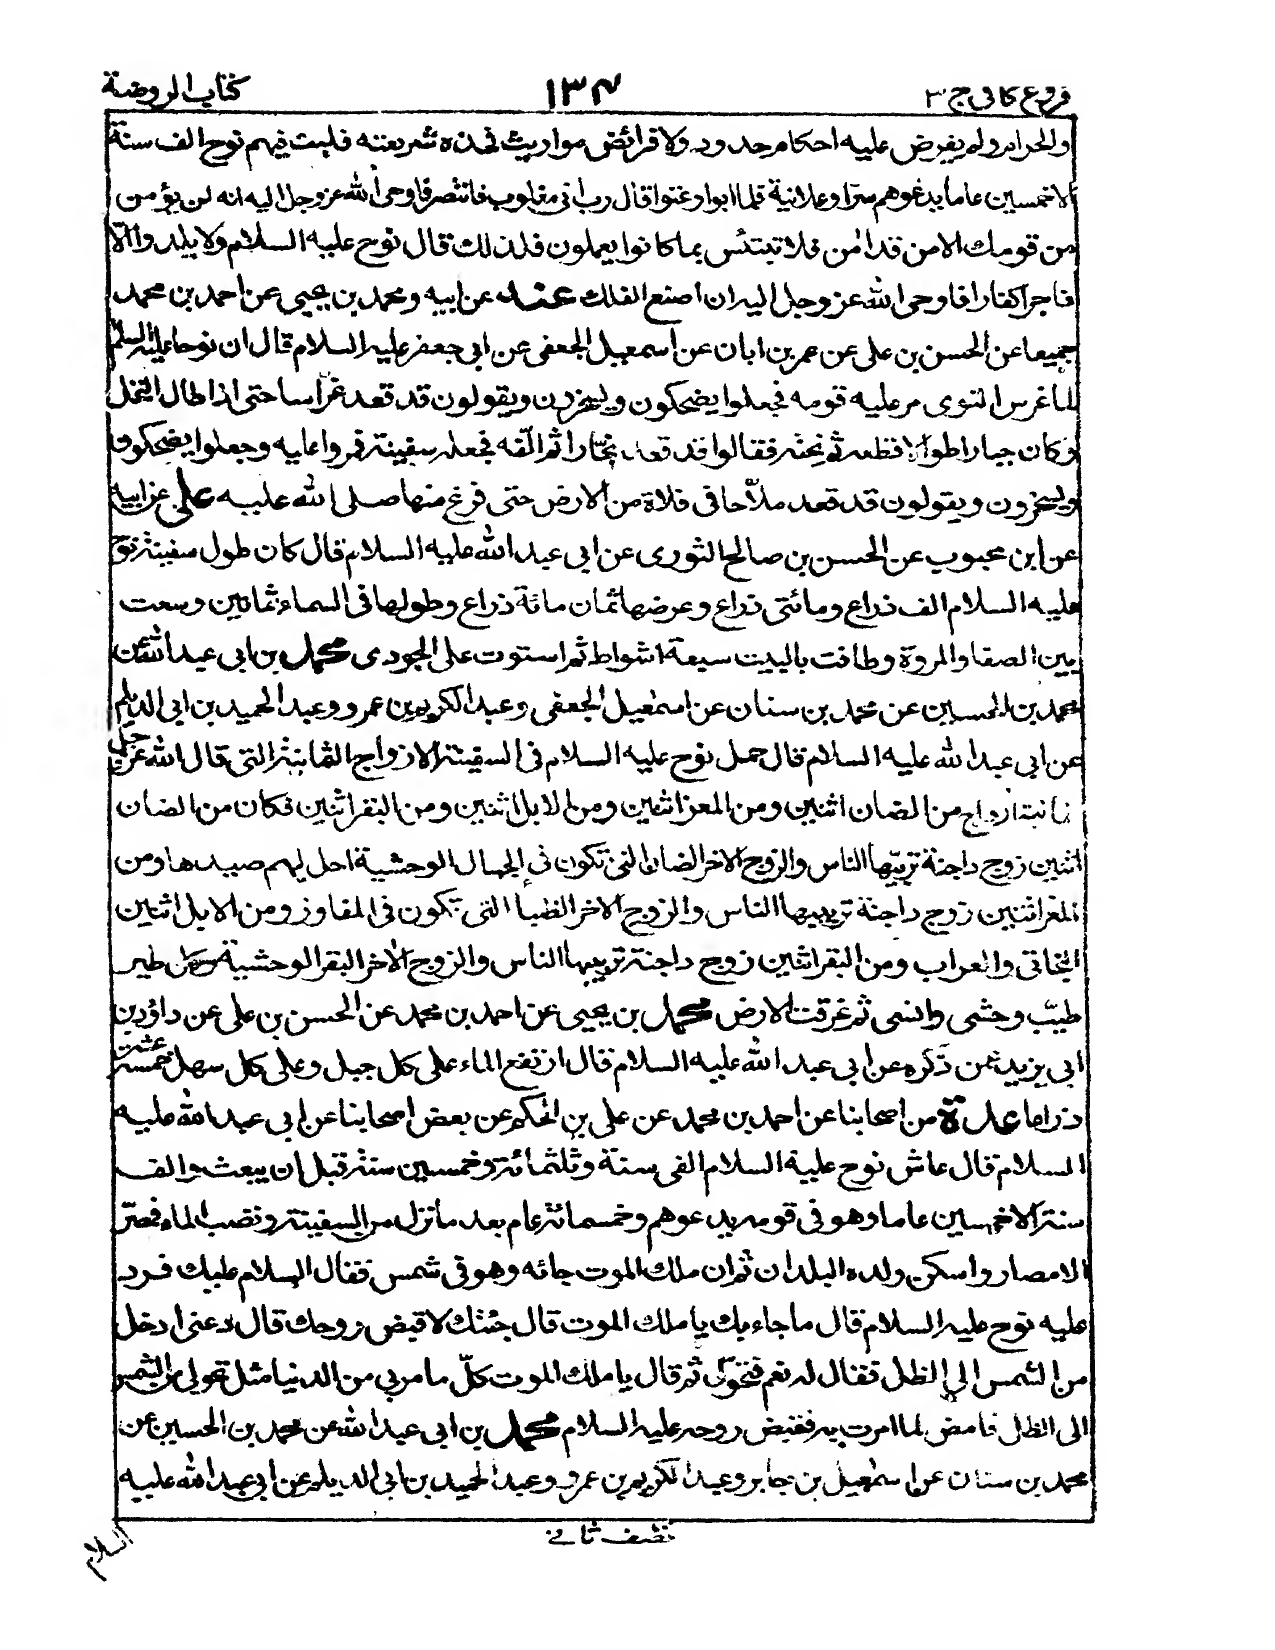 فروع كافى ج ٣ ١٣٤ كتاب الروضة
والحرام ولم يفرض عليه احكام حدود ولا فرائض مواريث فهذه شريعته فلبث فيهم نوح الف سنة
الا خمسين عاما يدعوهم سرا وعلانية فلما ابوا وعتوا قال رب انى مغلوب فانتصر فاوحى الله عز وجل اليه انه لن يؤمن
من قومك الا من قد امن فلا تبتئس بما كانوا يعملون فلذلك قال نوح عليه السلام ولا يلدوا الا
فاجرا كفارا فاوحى الله عز وجل اليه ان اصنع الفلك عنه عن ابيه ومحمد بن يحيى عن احمد بن محمد
جميعا عن الحسن بن على عن عمر بن ابان عن اسمعيل الجعفى عن ابى جعفر عليه السلام قال ان نوحا عليه السلم
لما غرس النوى مر عليه قومه فجعلوا يضحكون ويسخرون ويقولون قد قعد غراسا حتى اذا طال النخل
وكان جبارا طوالا قطعه ثم نحته فقالوا قد قعد نجارا ثم الفه فجعله سفينة فمروا عليه وجعلوا يضحكون
ويسخرون ويقولون قد قعد ملاحا فى فلاة من الارض حتى فرغ منها صلى الله عليه على عن ابيه
عن ابن محبوب عن الحسن بن صالح الثورى عن ابى عبد الله عليه السلام قال كان طول سفينة نوح
عليه السلام الف ذراع ومائتى ذراع وعرضها ثمان مائة ذراع وطولها فى السماء ثمانين وسعت
بين الصفا والمروة وطافت بالبيت سبعة اشواط ثم استوت على الجودى محمد بن ابى عبد الله عن
محمد بن الحسين عن محمد بن سنان عن اسمعيل الجعفى وعبد الكريم بن عمرو وعبد الحميد بن ابى الديلم
عن ابى عبد الله عليه السلام قال حمل نوح عليه السلام فى السفينة الازواج الثمانية التى قال الله عز وجل
ثمانية ازواج من الضان اثنين ومن المعز اثنين ومن الابل اثنين ومن البقر اثنين فكان من الضان
اثنين زوج داجنة تربيها الناس والزوج الاخر الضان التى تكون فى الجبال الوحشية احل لهم صيدها ومن
المعز اثنين زوج داجنة تربيها الناس والزوج الاخر الظبا التى تكون فى المفاوز ومن الابل اثنين
البخاتى والعراب ومن البقر اثنين زوج داجنة تربيها الناس والزوج الاخر البقر الوحشية وكل طير
طيب وحشى وانسى ثم غرقت الارض محمد بن يحيى عن احمد بن محمد عن الحسن بن على عن داؤد بن
ابى يزيد عمن ذكره عن ابى عبد الله عليه السلام قال ارتفع الماء على كل جبل وعلى كل سهل خمسة عشر
ذراعا عدة من اصحابنا عن احمد بن محمد عن على بن الحكم عن بعض اصحابنا عن ابى عبد الله عليه
السلام قال عاش نوح عليه السلام الفى سنة وثلثمائة وخمسين سنة قبل ان يبعث والف
سنة الا خمسين عاما وهو فى قومه يدعوهم وخمسمائة عام بعد ما نزل من السفينة ونضب الماء فمصر
الامصار واسكن ولده البلدان ثم ان ملك الموت جائه وهو فى شمس فقال السلام عليك فرد
عليه نوح عليه السلام قال ما جاء بك يا ملك الموت قال جئتك لاقبض روحك قال دعنى ادخل
من الشمس الى الظل فقال له نعم فتحول ثم قال يا ملك الموت كل ما مر بى من الدنيا مثل تحولى من الشمس
الى الظل فامض لما امرت به فقبض روحه عليه السلام محمد بن ابى عبد الله عن محمد بن الحسين عن
محمد بن سنان عن اسمعيل بن جابر وعبد الكريم بن عمرو وعبد الحميد بن ابى الديلم عن ابى عبد الله عليه
نصف ثانى
السلام